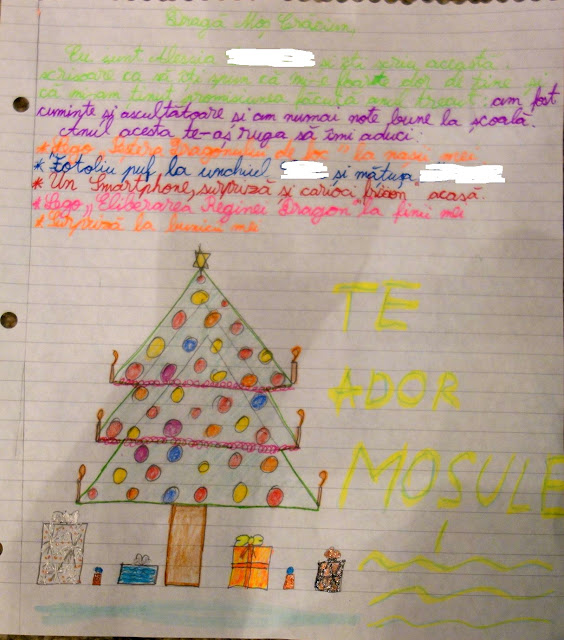 Dragă Moș Crăciun,
Eu sunt Alessia și îți scriu această
scrisoare ca să îți spun că mi-e foarte dor de tine și
că mi-am ținut promisiunea făcută anul trecut: am fost
cuminte și ascultătoare și am numai note bune la școală.
Anul acesta te-aș ruga să îmi aduci:
* Lego „Peștera Dragonului de foc" la nașii mei
* Fotoliu puf la unchiul și mătușa
* Un Smartphone, surpriză și carioci "frixon" acasă.
* Lego „Eliberarea Reginei Dragon" la finii mei
* Surpriză la bunicii mei
TE
ADOR
MOȘULE
!